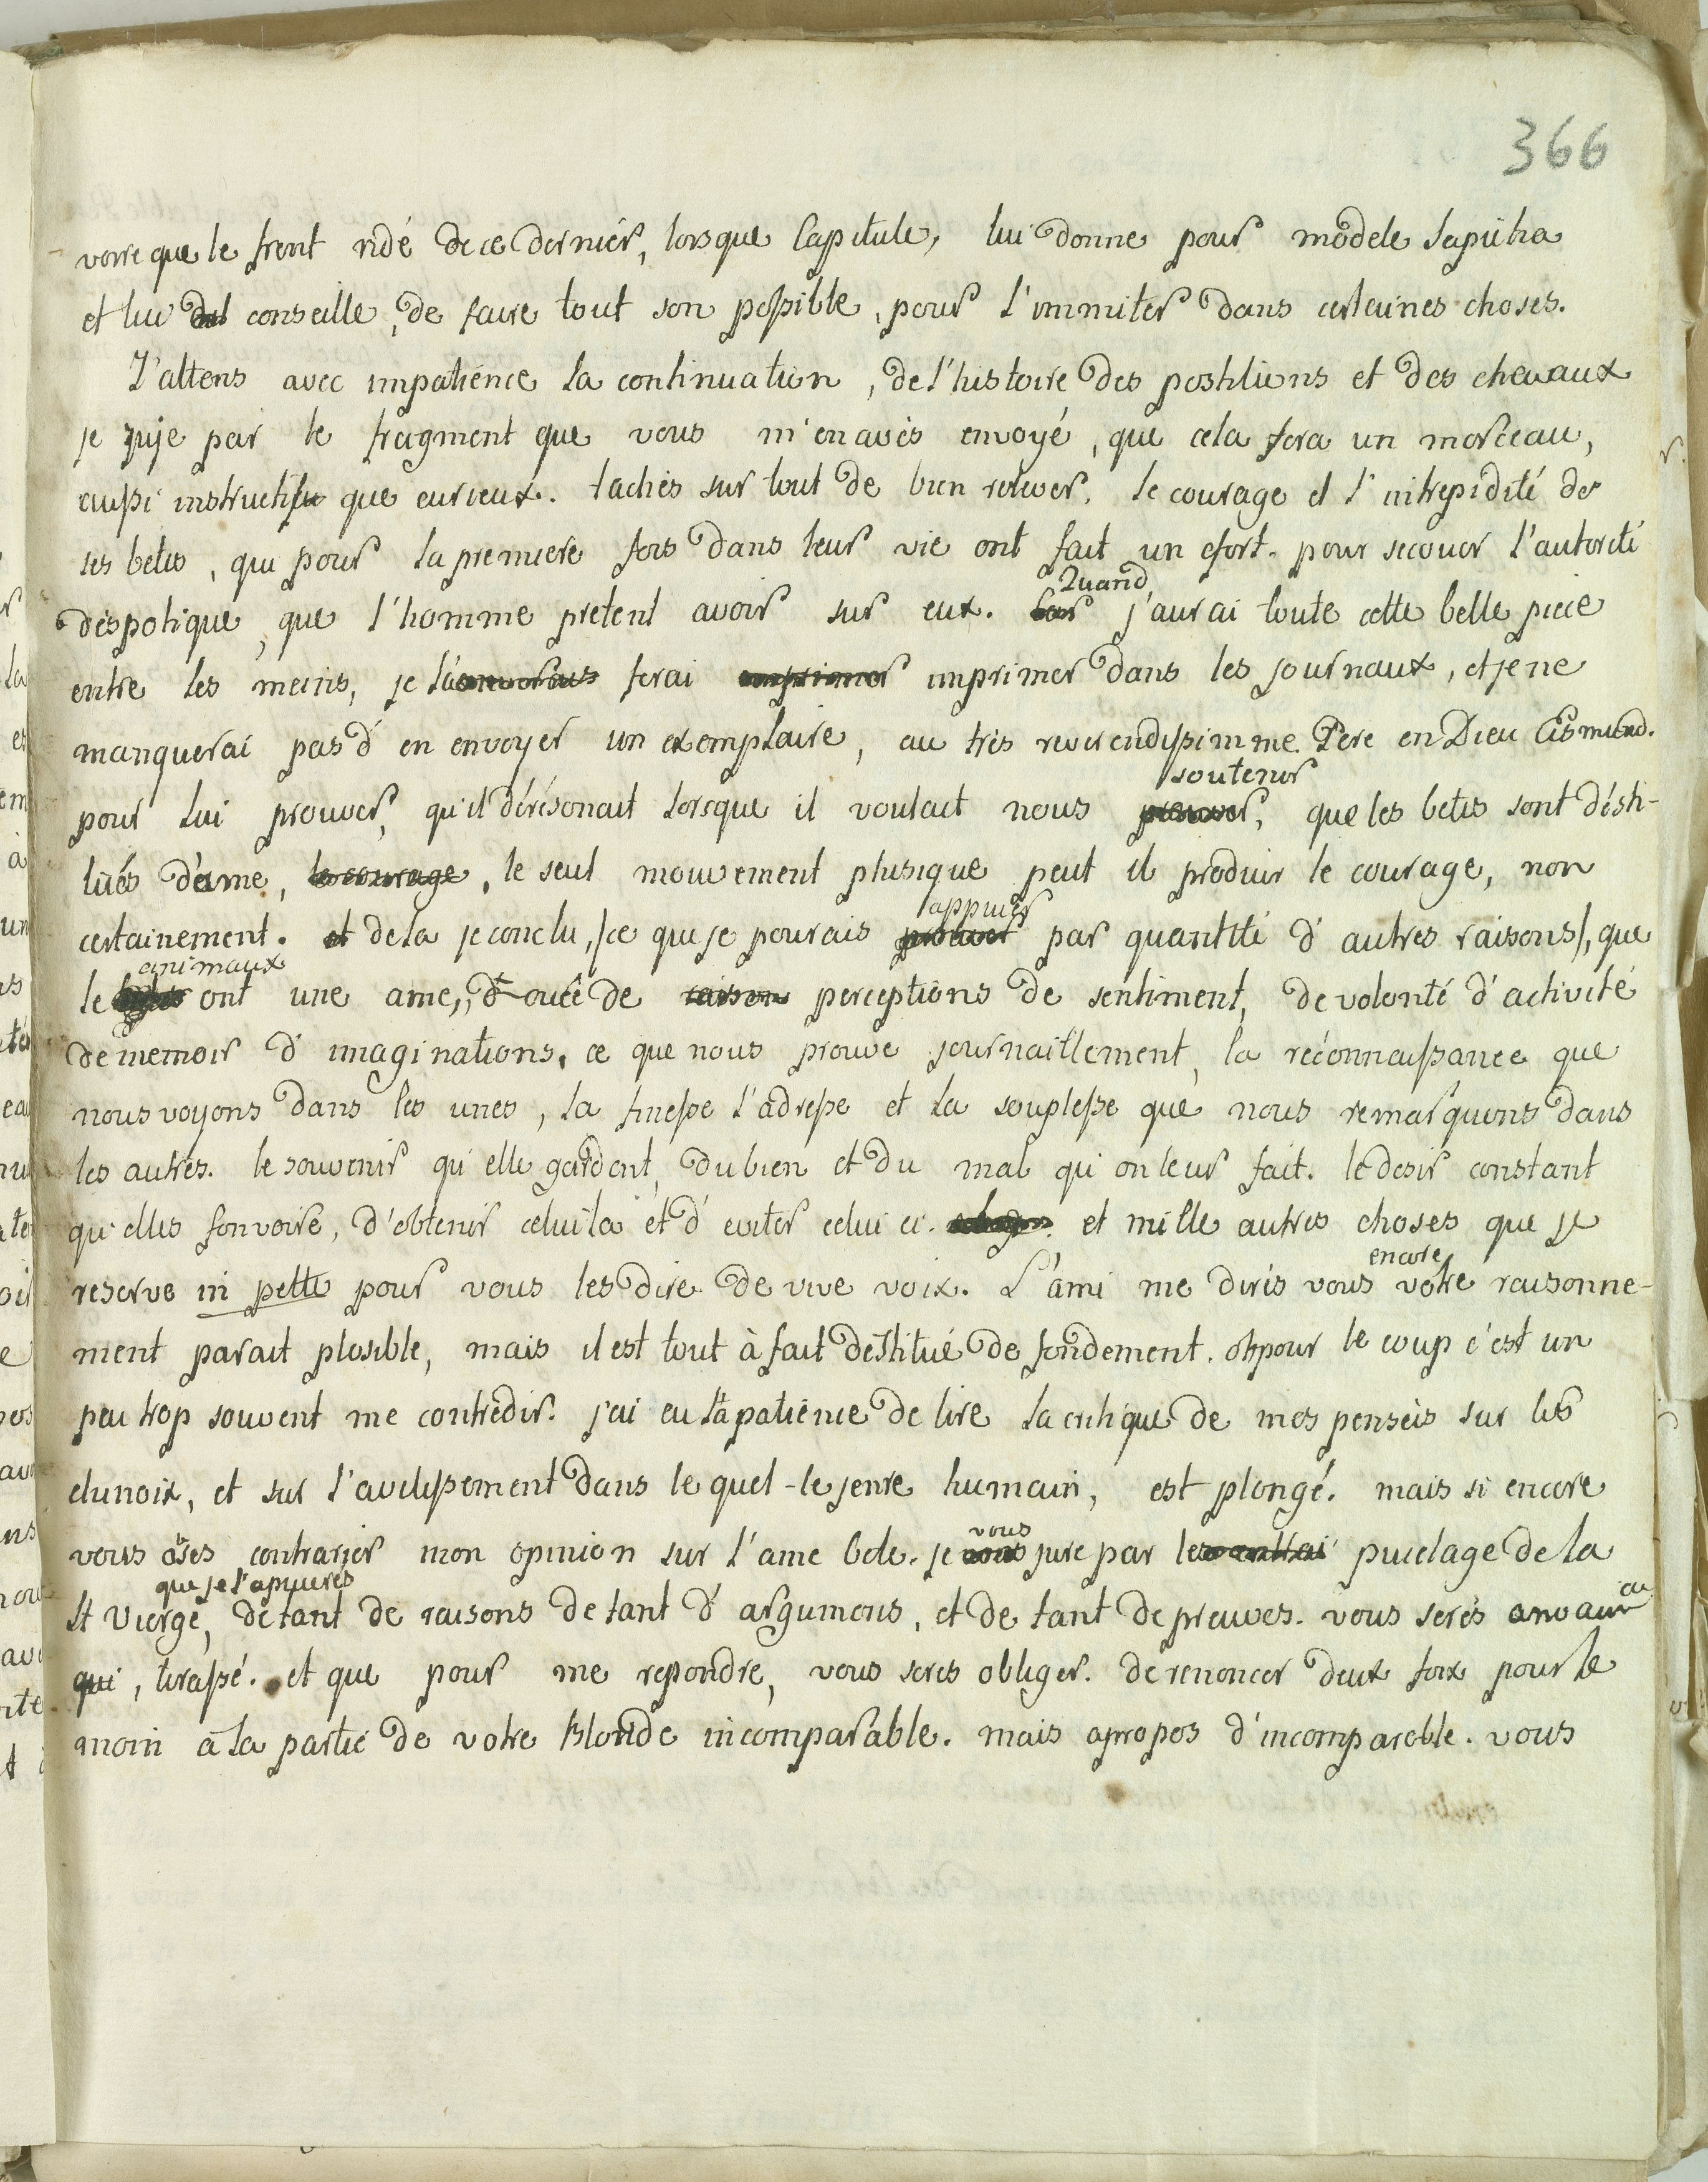 366
voire que le front ridé de ce dernier, lorsque Capitule, lui donne pour modele Sapieha
et lui conseille, de faire tout son possible, pour l'immiter dans certaines choses.
J'attens avec impatience la continuation, de l'histoire des postilions et des chevaux
je juje par le fragment que vous m'en avès envoyé, que cela fera un morceau,
aussi instructif que curieux. tachès sur tout de bien relever, le courage et l'intrepidité de
ses betes, qui pour la premiere fois dans leur vie ont fait un efort. pour secouer l'autorité
Quand
despotique, que l'homme pretent avoir sur eux. j'aurai toute cette belle piece
entre les meins, je la ferai imprimer dans les journaux, et je ne
manquerai pas d'en envoyer un exemplaire, au très reverendissimme Pere en Dieu Eismund.
soutenir
pour lui prouver, qu'il dérésonait lorsque il voulait nous prouver, que les betes sont désti-
tués d'ame, le courage, le seul mouvement phisique peut il produir le courage, non
appuier
certainement. et de la je conclu, /ce que je pourais prouver par quantité d'autres raisons/, que
animaux
le ont une ame, douée de raison perceptions de sentiment, de volonté d'activité
de memoir d'imaginations, ce que nous prouve journaillement, la réconnaissance que
nous voyons dans les unes, la finesse l'adresse et la souplesse que nous remarquons dans
les autres. le souvenir qu'elle gardent, du bien et du mal qu'on leur fait. le desir constant
qu'elles font voire, d'obtenir celui la et d'eviter celui ci. et mille autres choses que je
encore
reserve in petto pour vous les dire de vive voix. L'ami me dirés vous votre raisonne-
ment parait plosible, mais il est tout à fait destitué de fondement. oh pour le coup c'est un
peu trop souvent me contredir. j'ai eu la patience de lire la critique de mes penseés sur les
chinoix, et sur l'avilissement dans le quel le jenre humain, est plongé. mais si encore
vous
vous osés contrarier mon opinion sur l'ame bete. je vous jure par le pucelage de la
que je l'appuirés
St Vierge, de tant de raisons de tant d'argumens, et de tant de preuves. vous serés
qui, terassé. et que pour me repondre, vous serés obliger. de renoncer deux foix pour le
moin à la partie de votre Blonde incomparable. mais apropos d'incomparable. vous